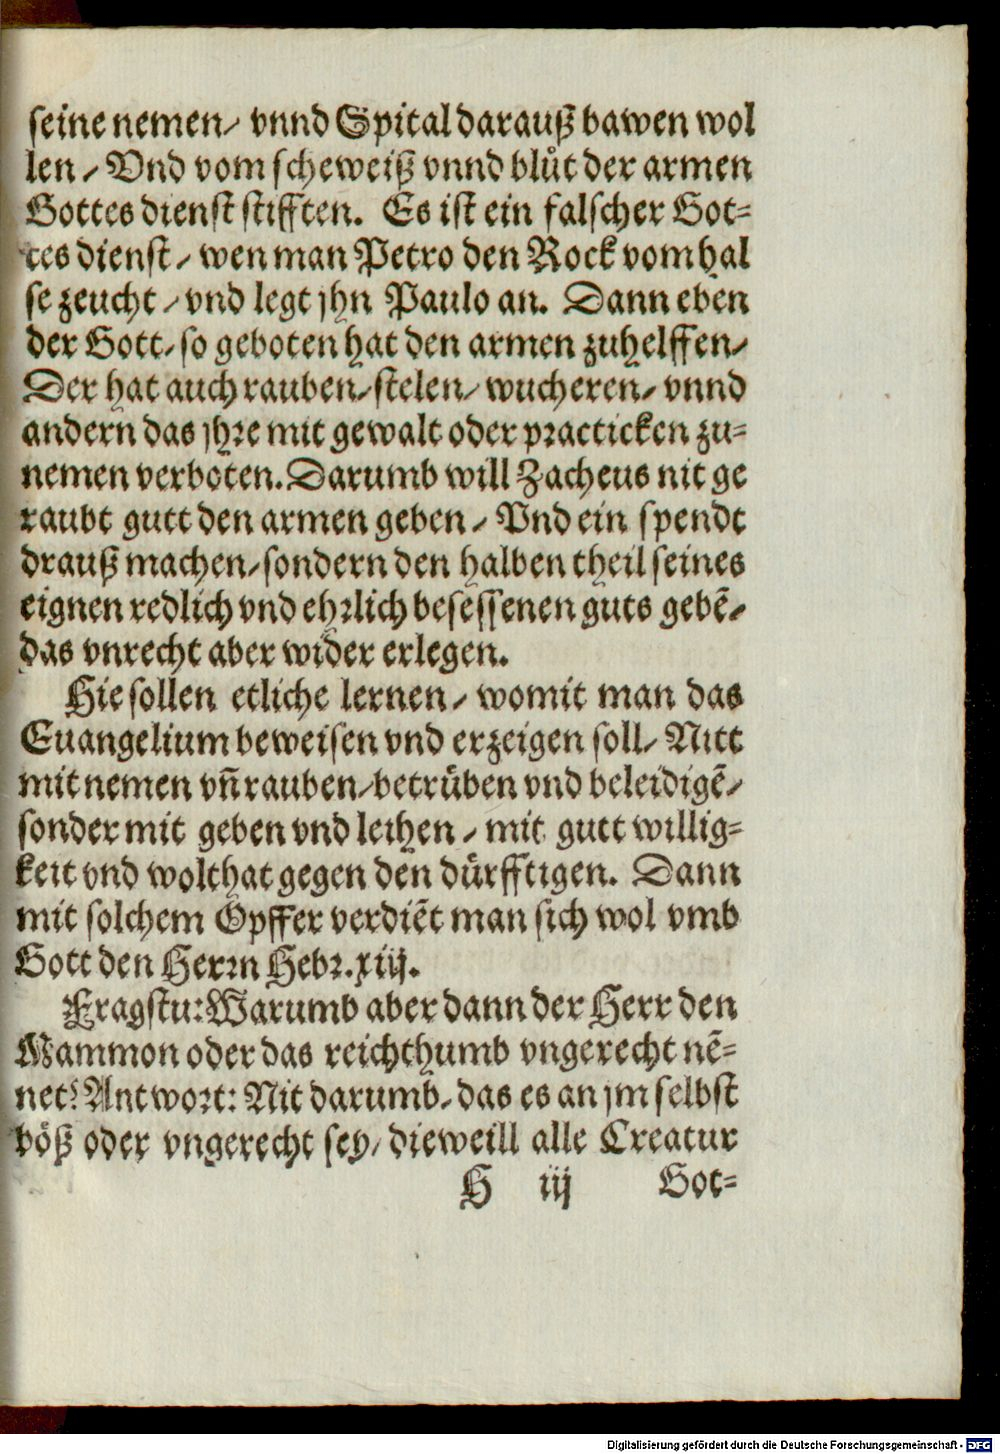 seine nemen/ vnnd Spital darauß bawen wol
len/ Vnd vom scheweiß vnnd blůt der armen
Gottes dienst stifften. Es ist ein falscher Got-
tes dienst/ wen man Petro den Rock vom hal
se zeucht/ vnd legt jhn Paulo an. Dann eben
der Gott/ so geboten hat den armen zuhelffen/
Der hat auch rauben/ stelen/ wucheren/ vnnd
andern das jhre mit gewalt oder practicken zu-
nemen verboten. Darumb will Zacheus nit ge
raubt gutt den armen geben/ Vnd ein spendt
drauß machen/ sondern den halben theil seines
eignen redlich vnd ehrlich besessenen guts gebē/
das vnrecht aber wider erlegen.
Hie sollen etliche lernen/ womit man das
Euangelium beweisen vnd erzeigen soll/ Nitt
mit nemen vn̄ rauben/ betrüben vnd beleidigē/
sonder mit geben vnd leihen/ mit gutt willig-
keit vnd wolthat gegen den dürfftigen. Dann
mit solchem Opffer verdiēt man sich wol vmb
Gott den Herrn Hebr. xiij.
Fragstu: Warumb aber dann der Herr den
Mammon oder das reichthumb vngerecht nē-
net? Antwort: Nit darumb/ das es an jm selbst
böß oder vngerecht sey/ dieweill alle Creatur
H iij Got-
Digitalisierung gefördert durch die Deutsche Forschungsgemeinschaft - DFG